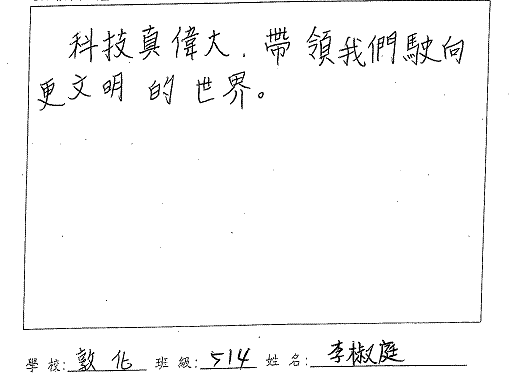 科技真偉大，帶領我們駛向
更文明的世界。
學校:敦化 班級:514 姓名:李椒庭